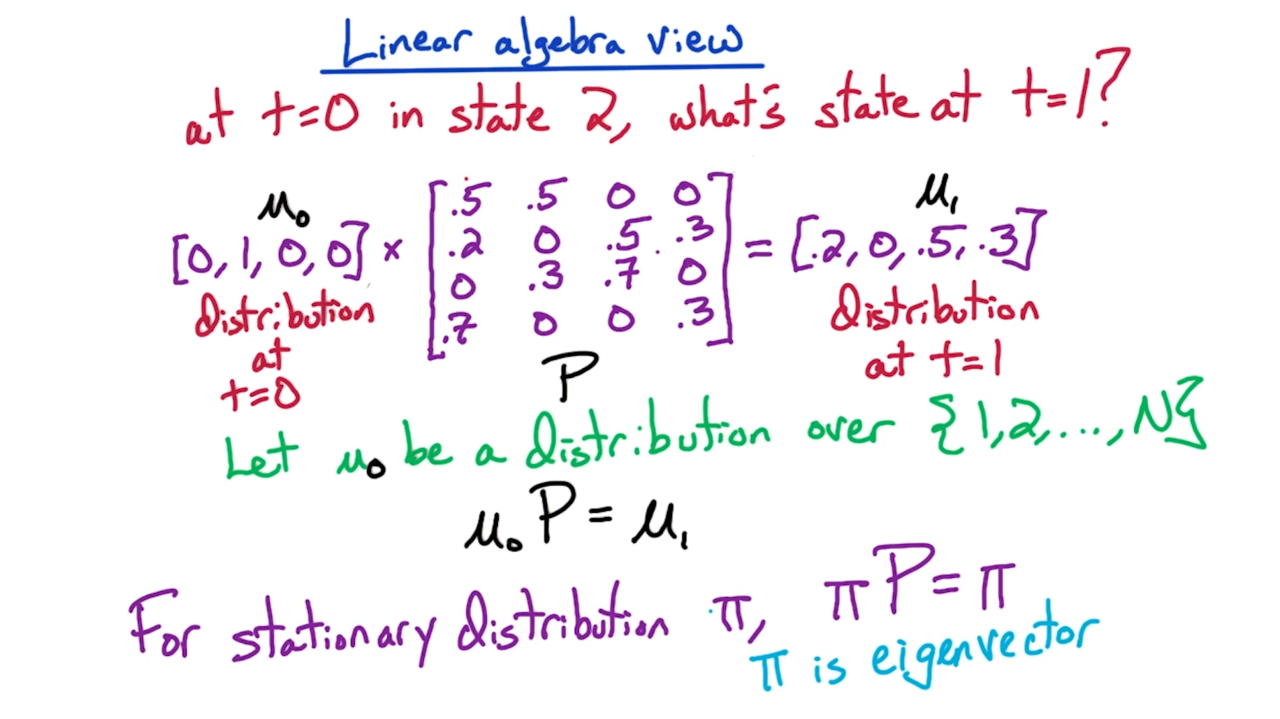 Linear algebra view
at t=0 in state 2, what's state at t=1?
μ₀ μ₁
[0, 1, 0, 0] × [.5 .5 0 0
.2 0 .5 .3
0 .3 .7 0
.7 0 0 .3] = [.2, 0, .5, .3]
distribution at t=0
P
distribution at t=1
Let μ₀ be a distribution over {1,2,...,N}
μ₀ P = μ₁
For stationary distribution π, π P = π
π is eigenvector